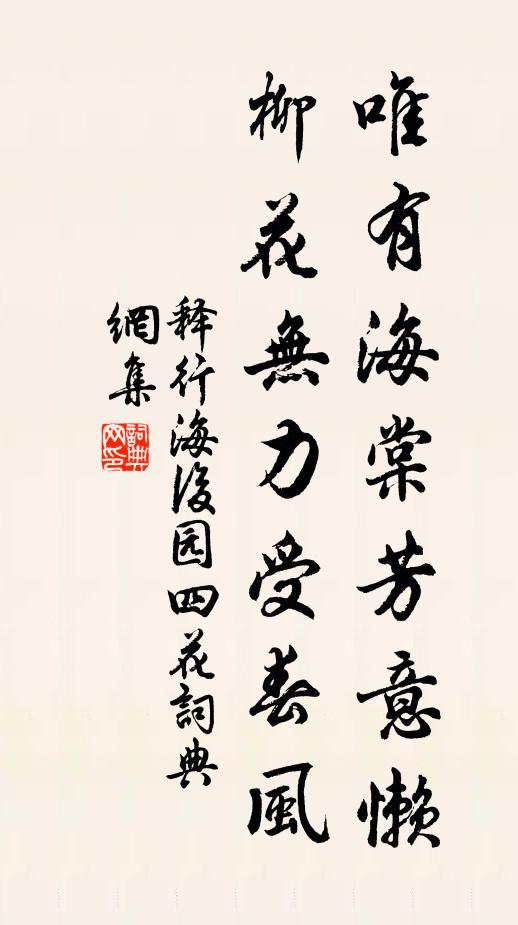 唯有海棠芳意懒
柳花無力受春風
释行海後园四花詞典
網集
詞典网印